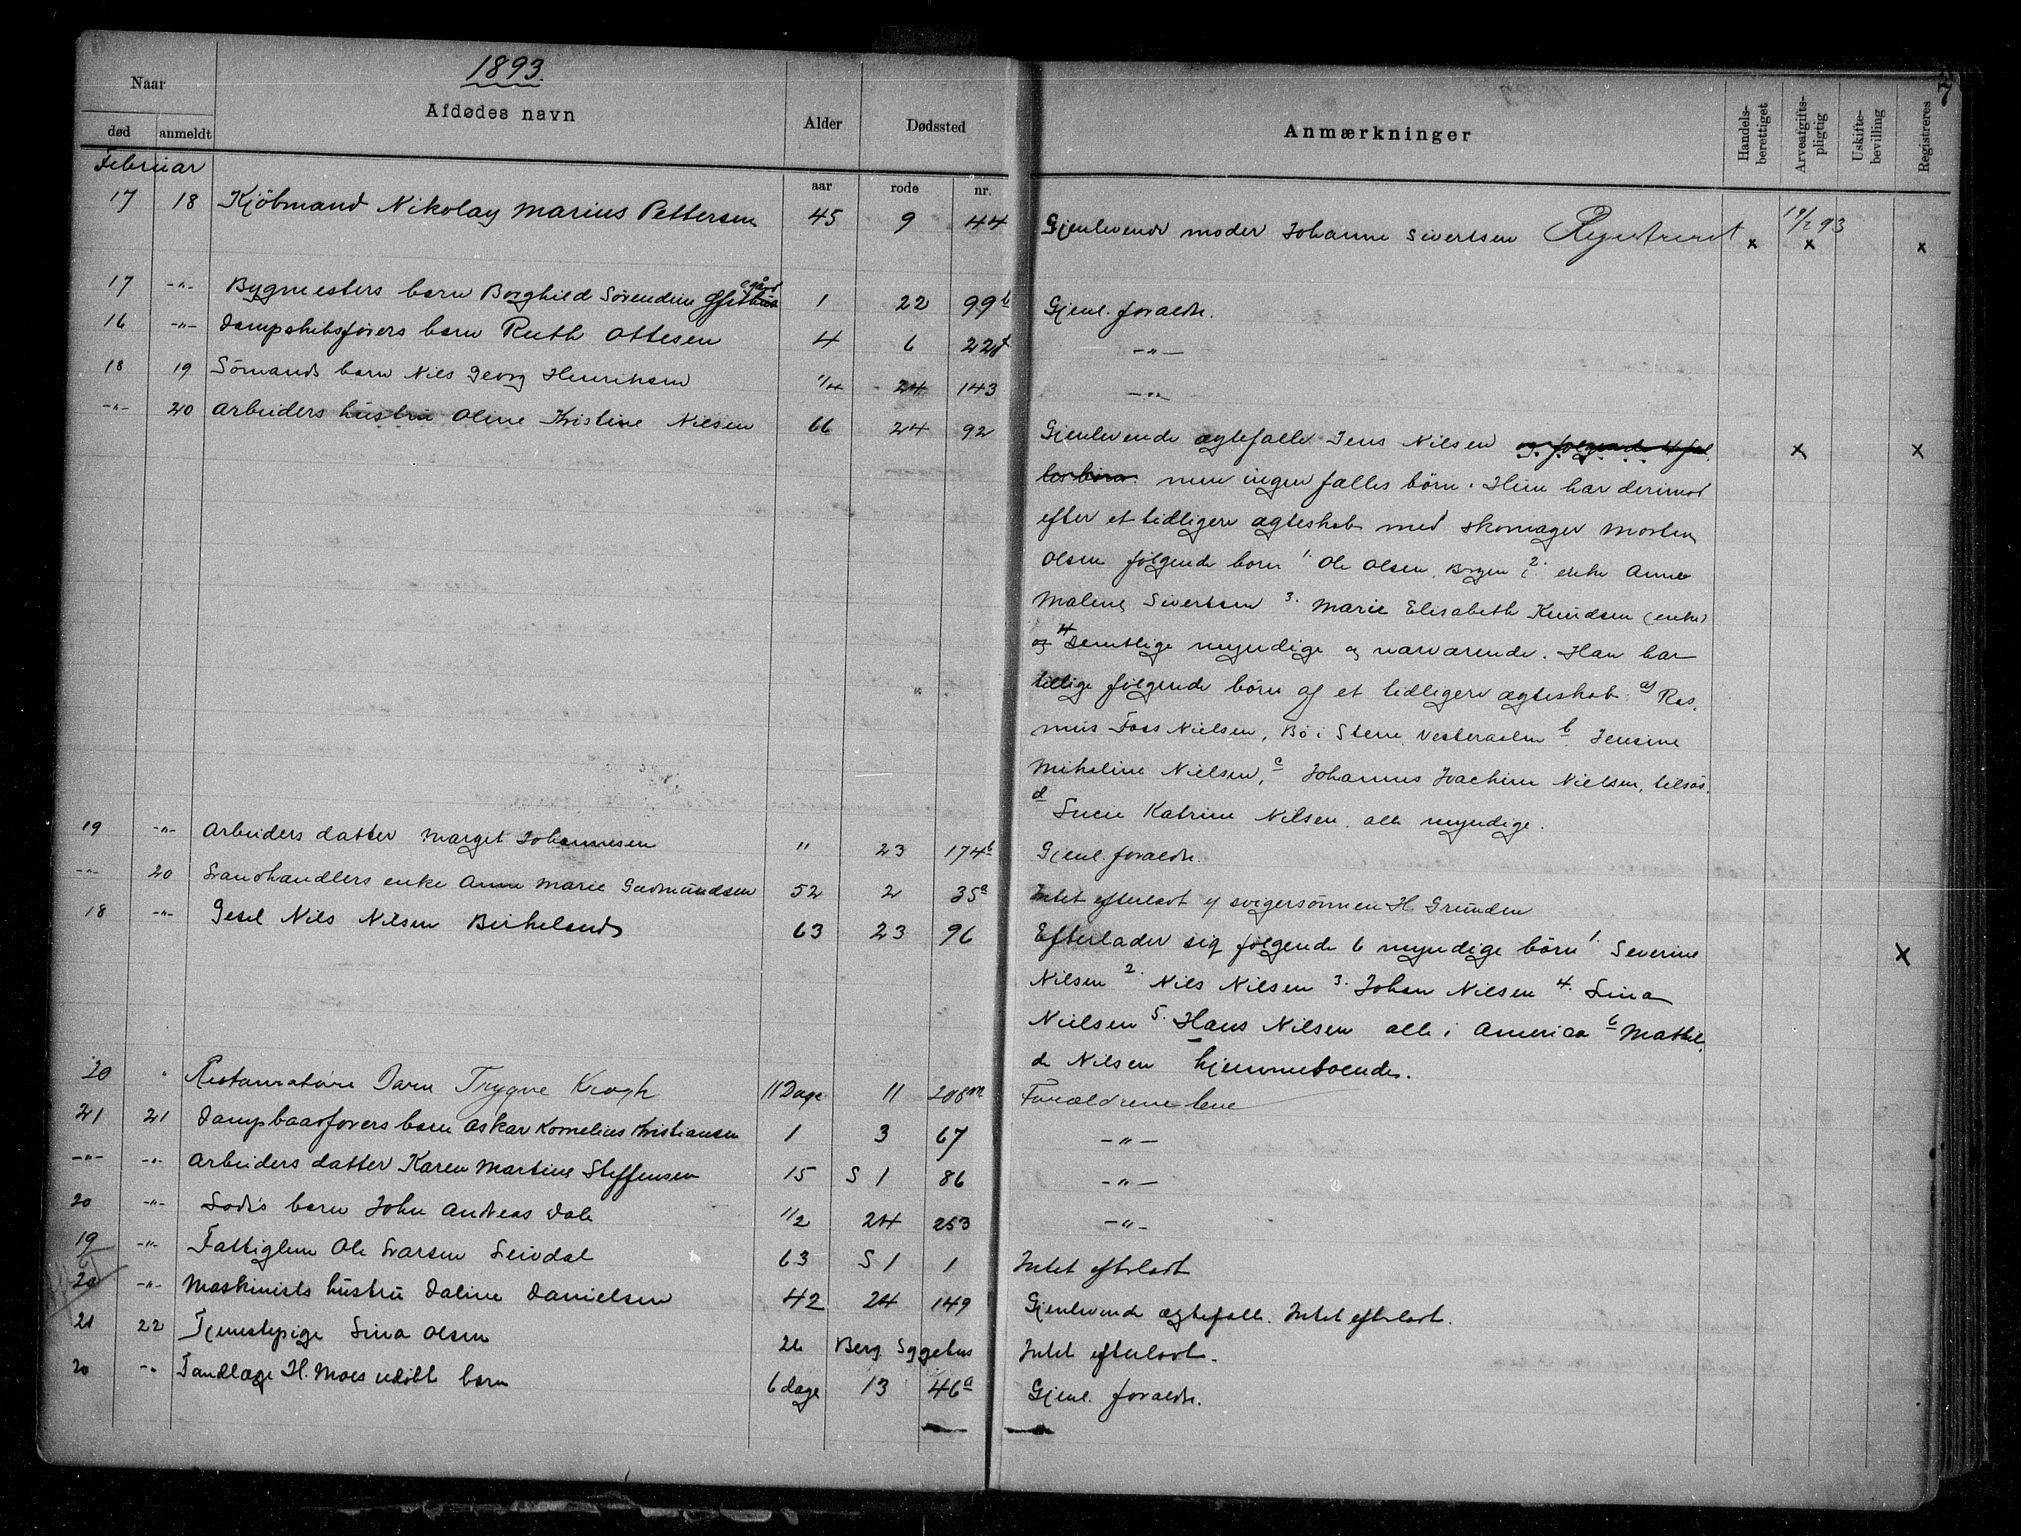 1893.
7
Naar
død anmeldt
Afdødes navn
Alder
aar
Dødssted
rode nr.
Anmærkninger
Handels-berettiget
Arveafgifts-pligtig
Uskifte-bevilling
Registreres
Februar
17 18 Kjöbmand Nikolay Marius Pettersen 45 9 44 Gjenlevende moder Johanne Sivertsen Registreret 19/2 93 x x x
17 -"- Bygmesters barn Borghild Sörendine 1 22 99b Gjenl. foraldre.
16 -"- Dampskibsförers barn Ruth Ottesen 4 6 22d -"-
18 19 Sömands barn Nils Georg Henriksen 1/4 24 143 -"-
-"- 20 Arbeiders hustru Oline Kristine Nilsen 66 24 92 Gjenlevende ægtefælle Jens Nilsen og følgende 4 fæl. x x
les börn. men ingen fælles börn. Hun har derimod
efter et tidligere ægteskab med skomager Morten
Olsen følgende børn 1. Ole Olsen, Bergen, 2. enke Anne
Malene Sivertsen 3. Marie Elisabeth Knudsen (enke)
og 4 Samtlige myndige og nærværende. Han har
tillige følgende börn af et tidligere ægteskab: a) Ras.
mus Foss Nielsen, Bö i Vesteraalen b Jensine
Mikeline Nielsen, c Johannes Joachim Nielsen, tilsös.
d Lucie Katrine Nilsen. alle myndige.
19 -"- Arbeiders datter Marget Johannesen " 23 174b Gjenl. foraldre.
-"- 20 Trandhandlers enke Anne Marie Gudmundsen 52 2 35a Intet efterladt af svigersönnen H. Grunden
18 -"- Gesel Nils Nilsen Birkeland 63 23 96 Efterlader sig følgende 6 myndige börn 1. Severine x
Nilsen 2. Nils Nilsen 3. Johan Nilsen 4. Lina
Nielsen 5. Hans Nilsen alle i America 6 Mathil.
de Nilsen hjemmeboende.
20 " Restauratörs Barn Trygve Krogh 11 Dage 11 208 Forældrene leve
21 21 Dampbaadförers barn Oskar Kornelius Kristiansen 1 3 67 -"-
-"- -"- Arbeiders datter Karen Martine Steffensen 15 S 1 86 -"-
20 -"- Lods barn John Andreas Dale 1/2 24 253 -"-
19 -"- Fattiglem Ole Larsen 63 S 1 1 Intet efterladt
20 -"- Maskinists hustru Daline Danielsen 42 24 149 Gjenlevende ægtefælle. Intet efterladt.
21 22 Tjenestepige Lina Olsen 26 Berg Sygehus Intet efterladt.
20 -"- Tandlæge H. Moes udöbt barn 6 dage 13 46a Gjenl. foraldre.